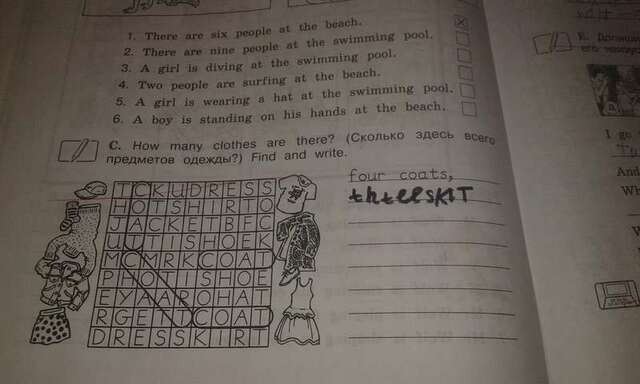 1. There are six people at the beach.
2. There are nine people at the swimming pool.
3. A girl is diving at the swimming pool.
4. Two people are surfing at the beach.
5. A girl is wearing a hat at the swimming pool.
6. A boy is standing on his hands at the beach.
C. How many clothes are there? (Сколько здесь всего
предметов одежды?) Find and write.
four coats,
threeSKIT
TCKUDRESS
HOTSHIRTO
JACKETBFC
UUTISHOEK
MCMRKCOAT
PHOTISHOE
EYAAROHAT
RGENTCOAT
DRESSKIRT
E.
его
I go
And